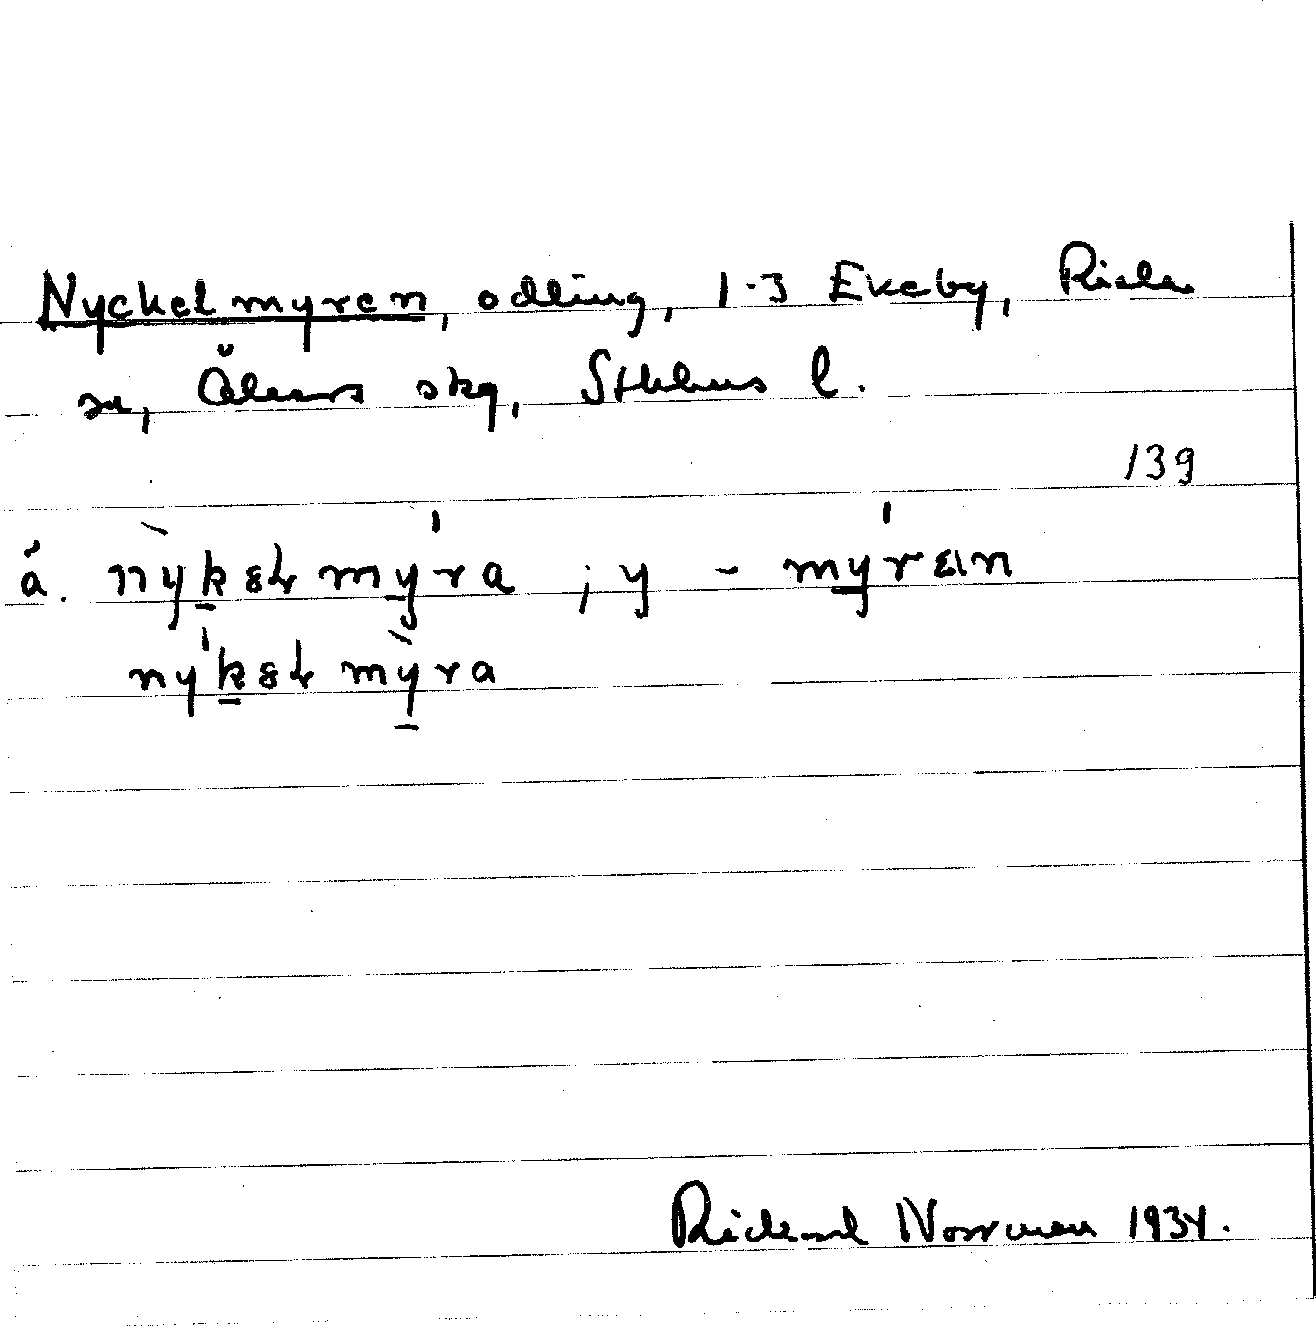 Nyckelmyren, odling, 1-3 Ekeby, Riala
sn, Åkers skg, Sthlms l.
139
å. nỳk̲ɛɫmy̲̍ra ; y - my̲̍rɛın
ny̍k̲ɛɫmỳ̲ra
Rickard Norrman 1934.